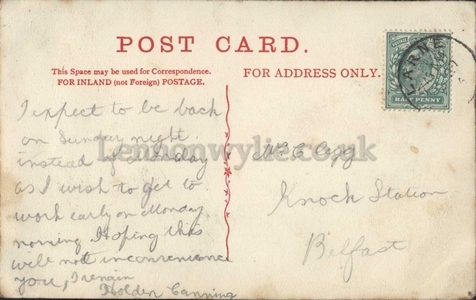 POST CARD.
This Space may be used for Correspondence.
FOR INLAND (not Foreign) POSTAGE.
FOR ADDRESS ONLY.
HALFPENNY
LARNE
Lennonwylie.co.uk
I expect to be back
on Sunday night
instead of Monday
as I wish to get to
work early on Monday
morning Hoping this
will not inconvenience
you, I remain
Holden Canning
Knock Station
Belfast